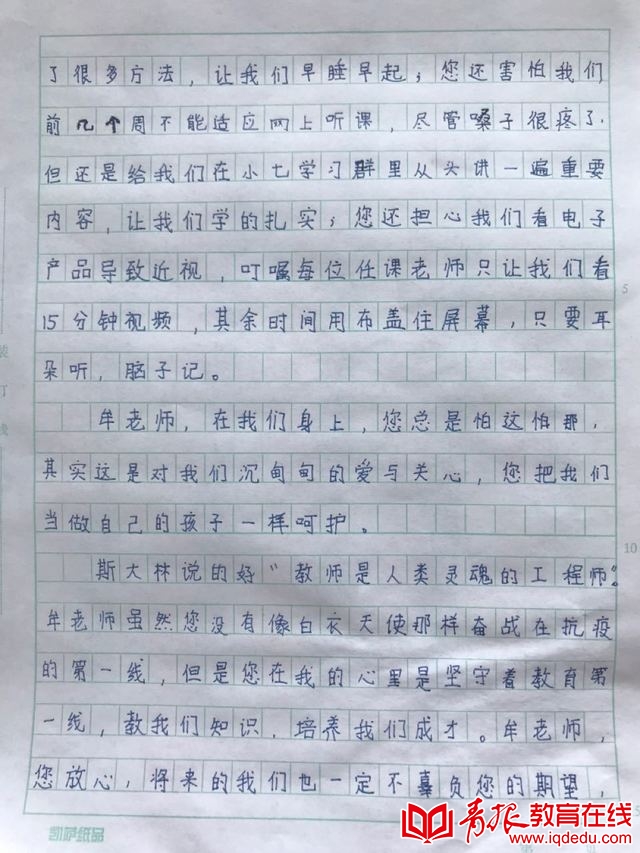 了很多方法，让我们早睡早起；您还害怕我们
前几个周不能适应网上听课，尽管嗓子很疼了，
但还是给我们在小七学习群里从头讲一遍重要
内容，让我们学的扎实；您还担心我们看电子
产品导致近视，叮嘱每位任课老师只让我们看
15分钟视频，其余时间用布盖住屏幕，只要耳
朵听，脑子记。
牟老师，在我们身上，您总是怕这怕那，
其实这是对我们沉甸甸的爱与关心，您把我们
当做自己的孩子一样呵护。
斯大林说的好“教师是人类灵魂的工程师”。
牟老师虽然您没有像白衣天使那样奋战在抗疫
的第一线，但是您在我的心里是坚守着教育第
一线，教我们知识，培养我们成才。牟老师，
您放心，将来的我们也一定不辜负您的期望，
装
订
线
5
10
凯萨纸品
青报教育在线
www.iqdedu.com